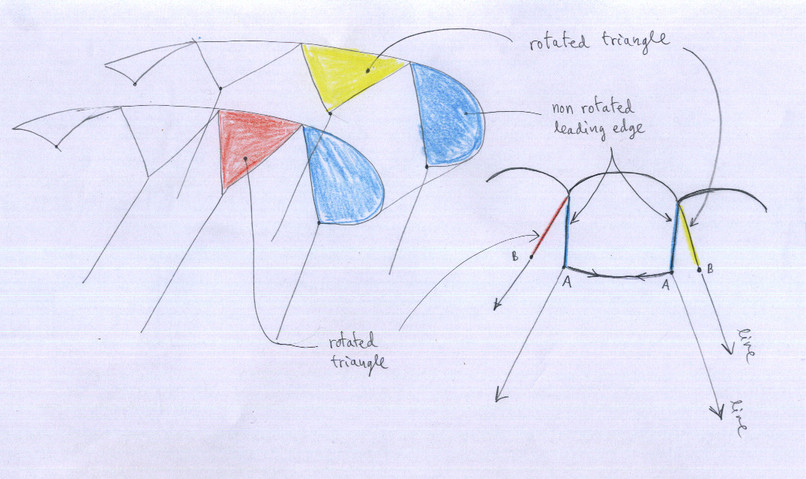 rotated triangle
non rotated
leading edge
B
A
A
B
line
line
rotated
triangle